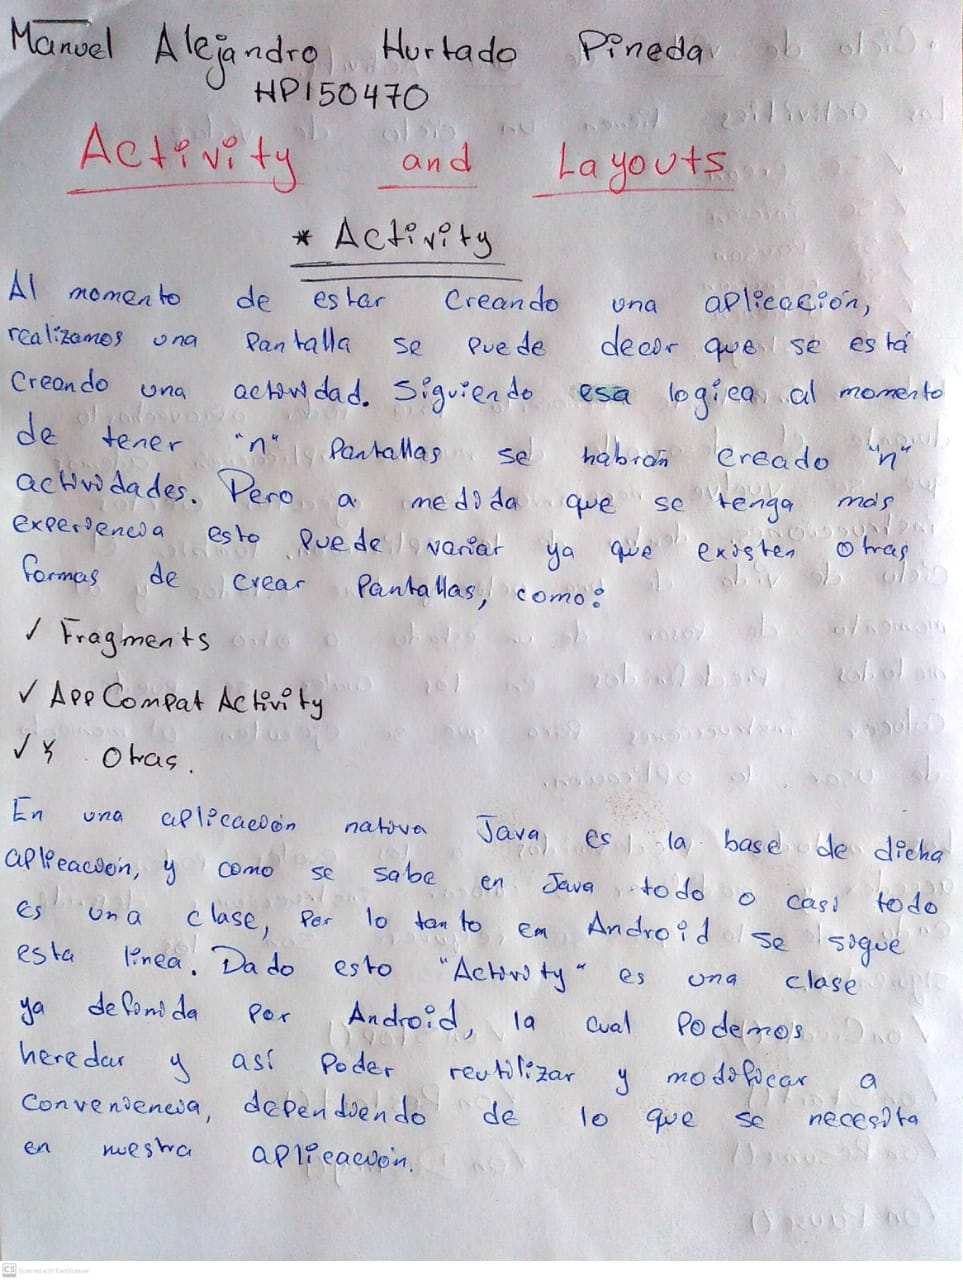 Manuel Alejandro Hurtado Pineda
HP150470
Activity and Layouts
* Activity
Al momento de estar creando una aplicación,
realizamos una pantalla se puede decir que se está
creando una actividad. Siguiendo esa logica al momento
de tener "n" pantallas se habrán creado "n"
actividades. Pero a medida que se tenga más
experiencia esto puede variar ya que existen otras
formas de crear pantallas, como:
✓ Fragments
✓ AppCompatActivity
✓ y otras.
En una aplicación nativa Java es la base de dicha
aplicación, y como se sabe en Java todo o casi todo
es una clase, por lo tanto en Android se sigue
esta línea. Dado esto "Activity" es una clase
ya definida por Android, la cual podemos
heredar y así poder reutilizar y modificar a
conveniencia, dependiendo de lo que se necesita
en nuestra aplicación.
CS Scanned with CamScanner